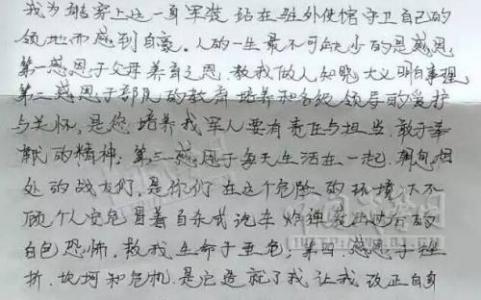 我为能穿上这一身军装站在驻外使馆守卫自己的
领地而感到自豪。人的一生最不可缺少的是感恩
第一感恩于父母养育之恩,教我做人知晓大义明白事理
第二感恩于部队的教育培养和各级领导的爱护
与关怀,是您培养我军人要有责任与担当,敢于奉
献的精神;第三感恩于每天生活在一起,朝夕相
处的战友们,是你们在这个危险的环境下不
顾个人安危冒着自杀式汽车炸弹袭击过后的
白色恐怖,救我生命于垂危;第四,感恩于挫
折,坎坷和危机,是它造就了我,让我改正自身